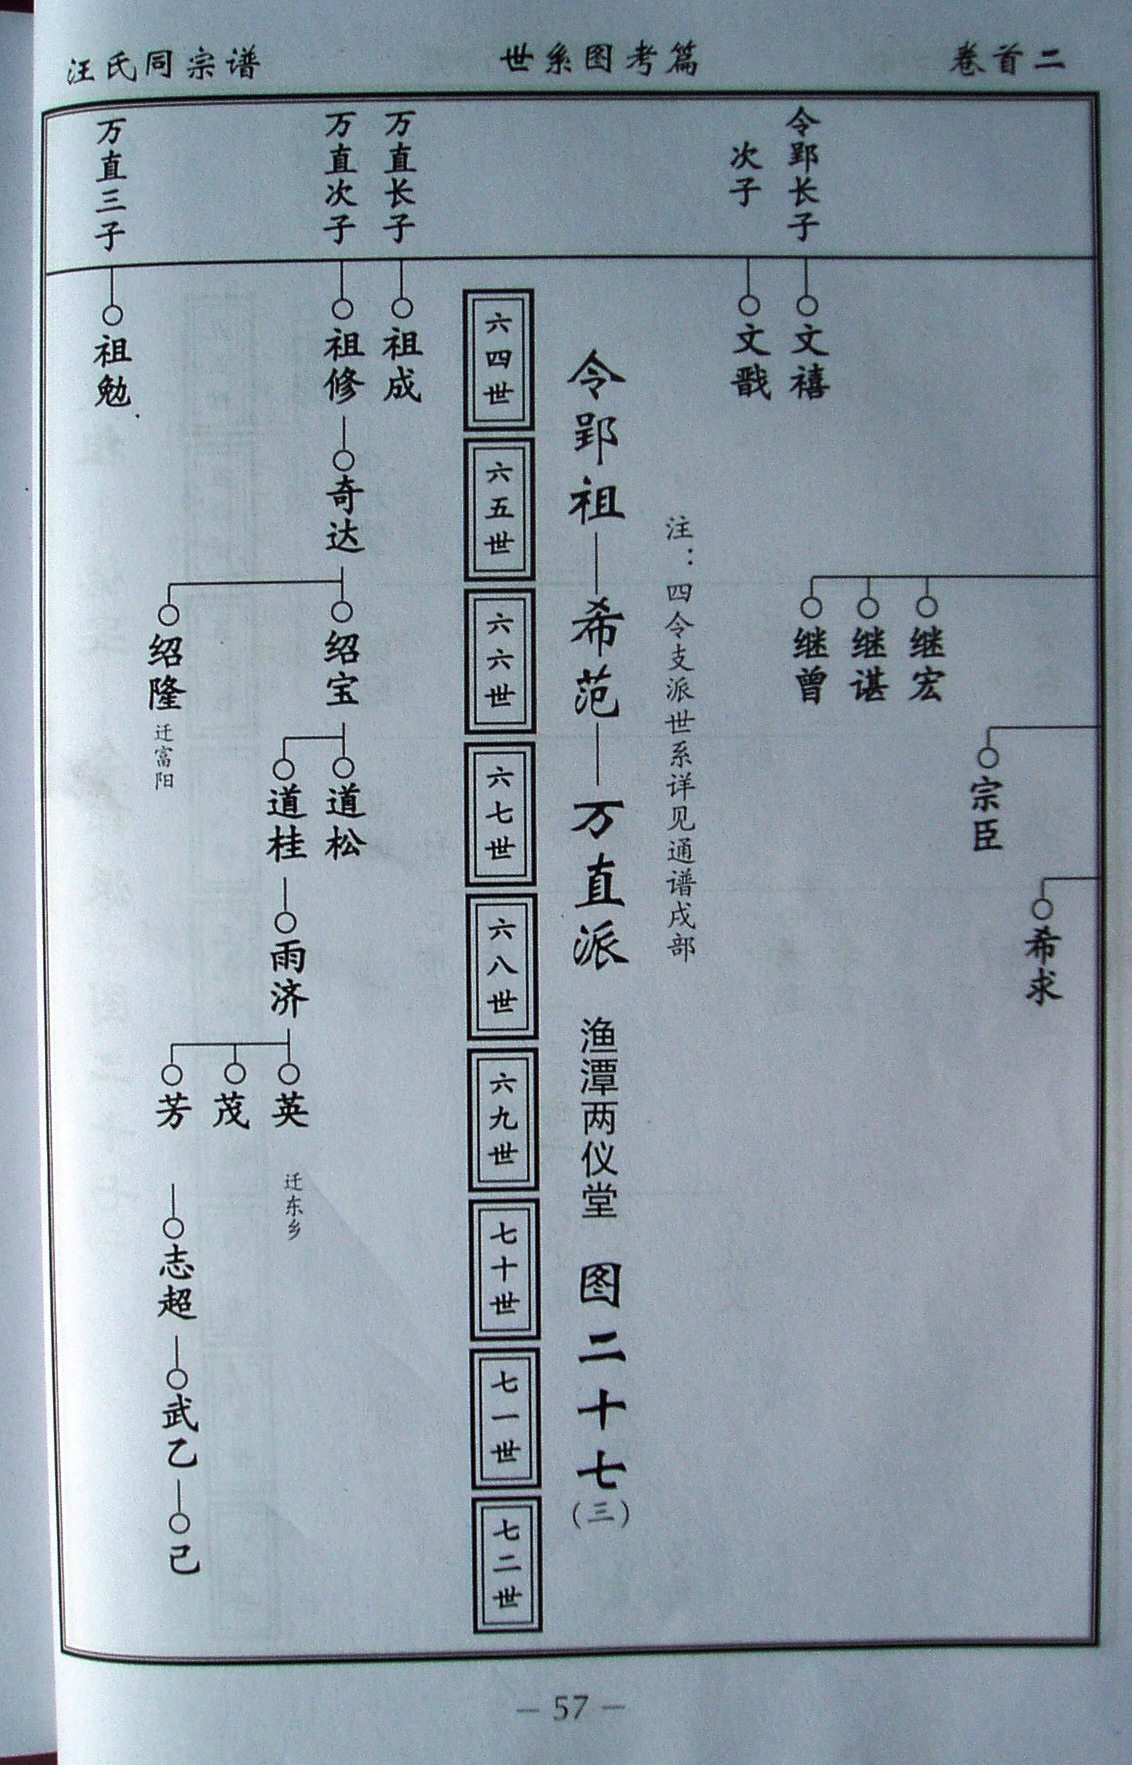 汪氏同宗谱
世系图考篇
卷首二
令郢长子
次子
文禧
文戬
继宏
继谌
继曾
宗臣
希求
注：四令支派世系详见通谱戌部
令郢祖—希范—万直派 渔潭两仪堂 图二十七(三)
六四世
六五世
六六世
六七世
六八世
六九世
七十世
七一世
七二世
万直长子
万直次子
万直三子
祖成
祖修
祖勉
奇达
绍宝
绍隆
迁富阳
道松
道桂
雨济
英
迁东乡
茂
芳
志超
武乙
己
— 57 —